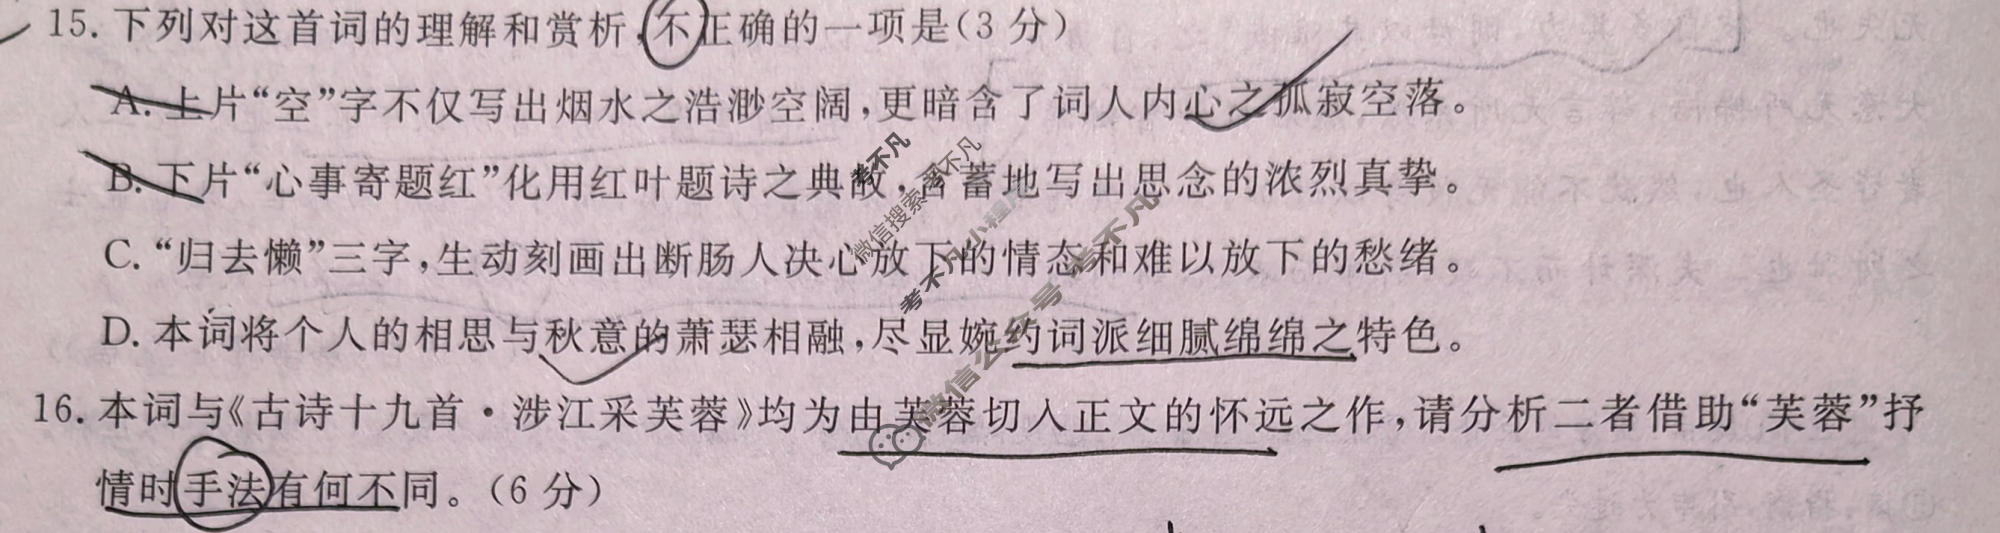 15. 下列对这首词的理解和赏析,不正确的一项是(3 分)
A. 上片“空”字不仅写出烟水之浩渺空阔,更暗含了词人内心之孤寂空落。
B. 下片“心事寄题红”化用红叶题诗之典故,含蓄地写出思念的浓烈真挚。
C. “归去懒”三字,生动刻画出断肠人决心放下的情态和难以放下的愁绪。
D. 本词将个人的相思与秋意的萧瑟相融,尽显婉约词派细腻绵绵之特色。
16. 本词与《古诗十九首·涉江采芙蓉》均为由芙蓉切入正文的怀远之作,请分析二者借助“芙蓉”抒
情时手法有何不同。(6 分)
考不凡
微信搜索考不凡
考不凡小程序
微信公众号 考不凡